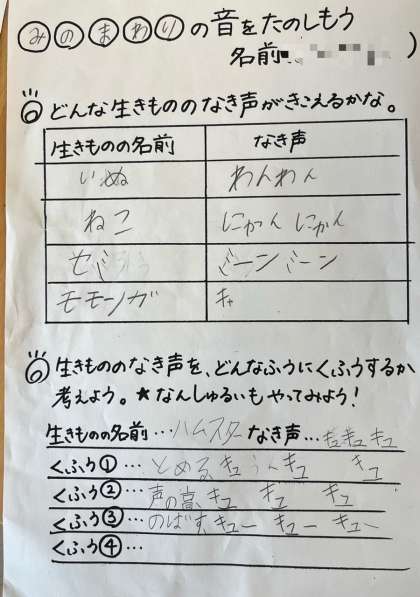 みのまわりの音をたのしもう
名前
どんな生きもののなき声がきこえるかな。
生きものの名前 なき声
いぬ わんわん
ねこ にゃん にゃん
セミ ミーン ミーン
モモンガ キャ
生きもののなき声を、どんなふうにくふうするか
考えよう。★なんしゅるいもやってみよう!
生きものの名前…ハムスター なき声…キュキュキュ
くふう①…とめる キュ キュ キュ
くふう②…声の高 キュ キュ キュ
くふう③…のばす キュー キュー キュー
くふう④…